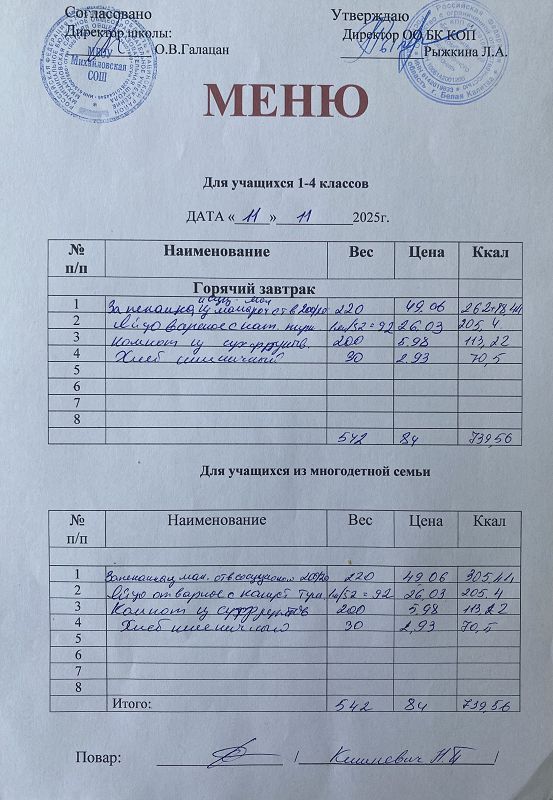 Согласовано Утверждаю
Директор школы: Директор ОО БК КОП
О.В.Галацан Рыжкина Л.А.
МБОУ
Михайловская
СОШ
г. Белая Калитва
МЕНЮ
Для учащихся 1-4 классов
ДАТА «11» 11 2025г.
№ п/п Наименование Вес Цена Ккал
Горячий завтрак
1 Запеканка из макарон отв 200/20 220 49.06
2 Яйцо вареное с кат. 1шт/52=92 26.03 205,4
3 Компот из сухофруктов. 200 5.98 113,22
4 Хлеб пшеничный 30 2,93 70,5
5
6
7
8
542 84 739,56
Для учащихся из многодетной семьи
№ п/п Наименование Вес Цена Ккал
1 Запеканка мак. отв с 200/20 220 49 06 305.44
2 Яйцо отварное с капуст туш. 1шт/52=92 26,03 205.4
3 Компот из сухофруктов 200 5,98 113,22
4 Хлеб пшеничный 30 2,93 70,5
5
6
7
8
Итого: 542 84 739,56
Повар: / /